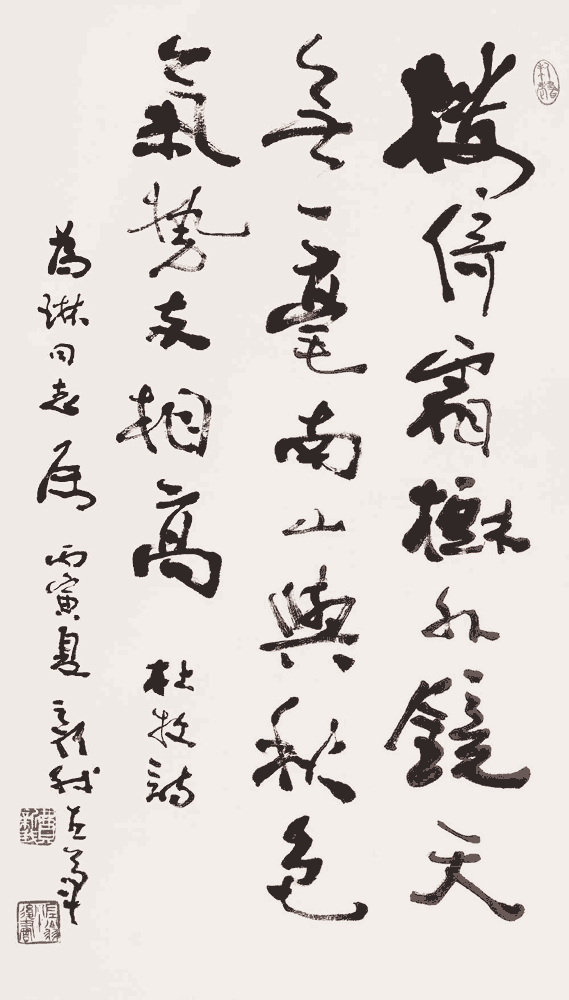 樓倚霜樹外鏡天
無一毫南山與秋色
氣勢相高 杜牧詩
為琳同志屬 丙寅夏 新我左筆